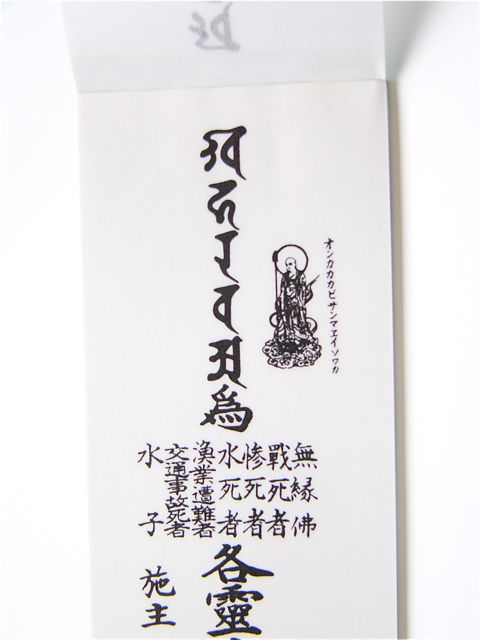 オンカカカビサンマヱイソワカ
爲
無縁佛
戰死者
惨死者
水死者
漁業遭難者
交通事故死者
水子
各靈
施主